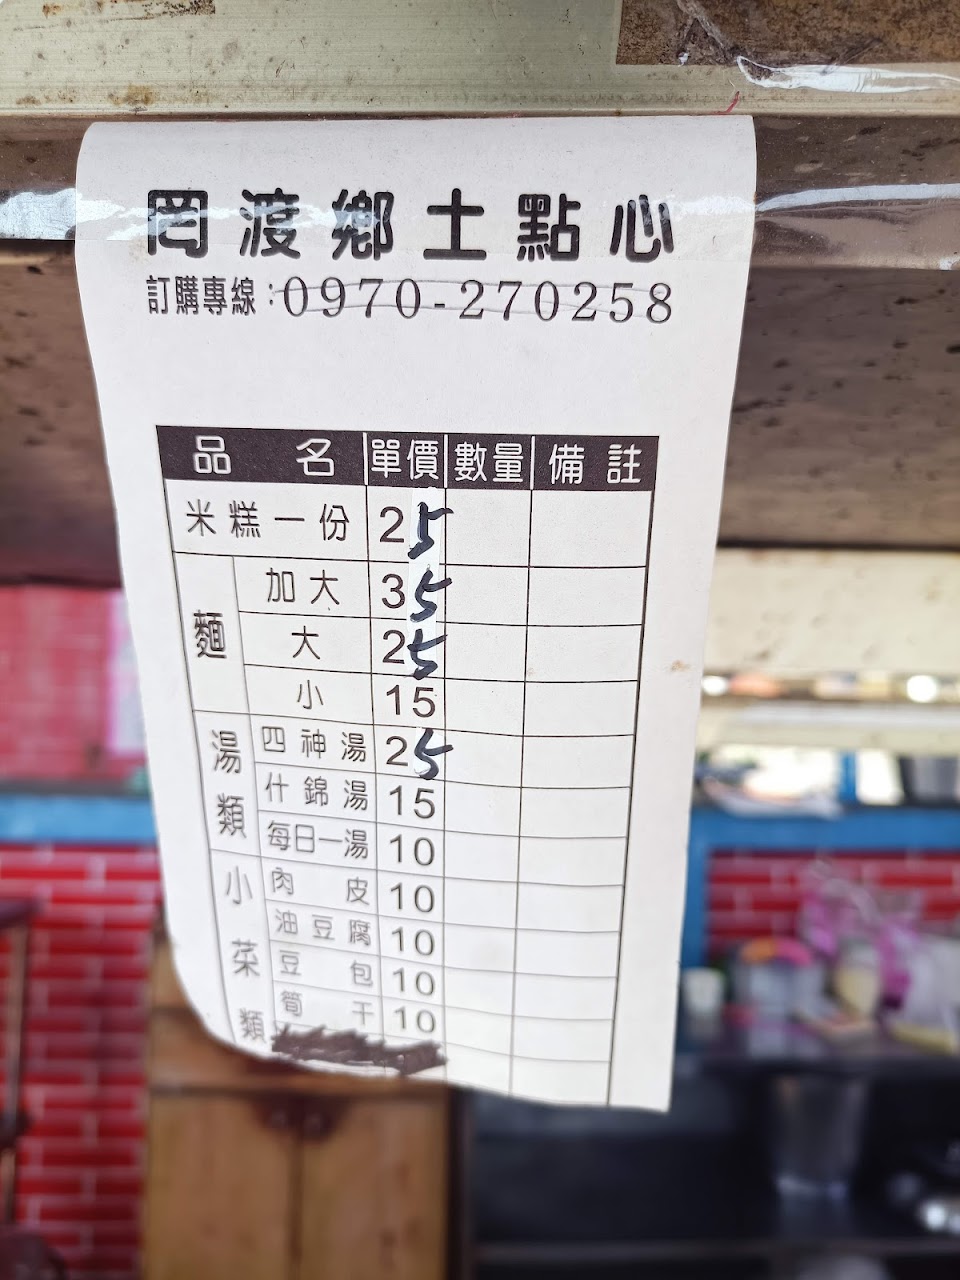 罔渡鄉土點心
訂購專線:0970-270258
品名 單價 數量 備註
米糕一份 25
麵 加大 35
大 25
小 15
湯類 四神湯 25
什錦湯 15
每日一湯 10
小菜類 肉皮 10
油豆腐 10
豆包 10
筍干 10